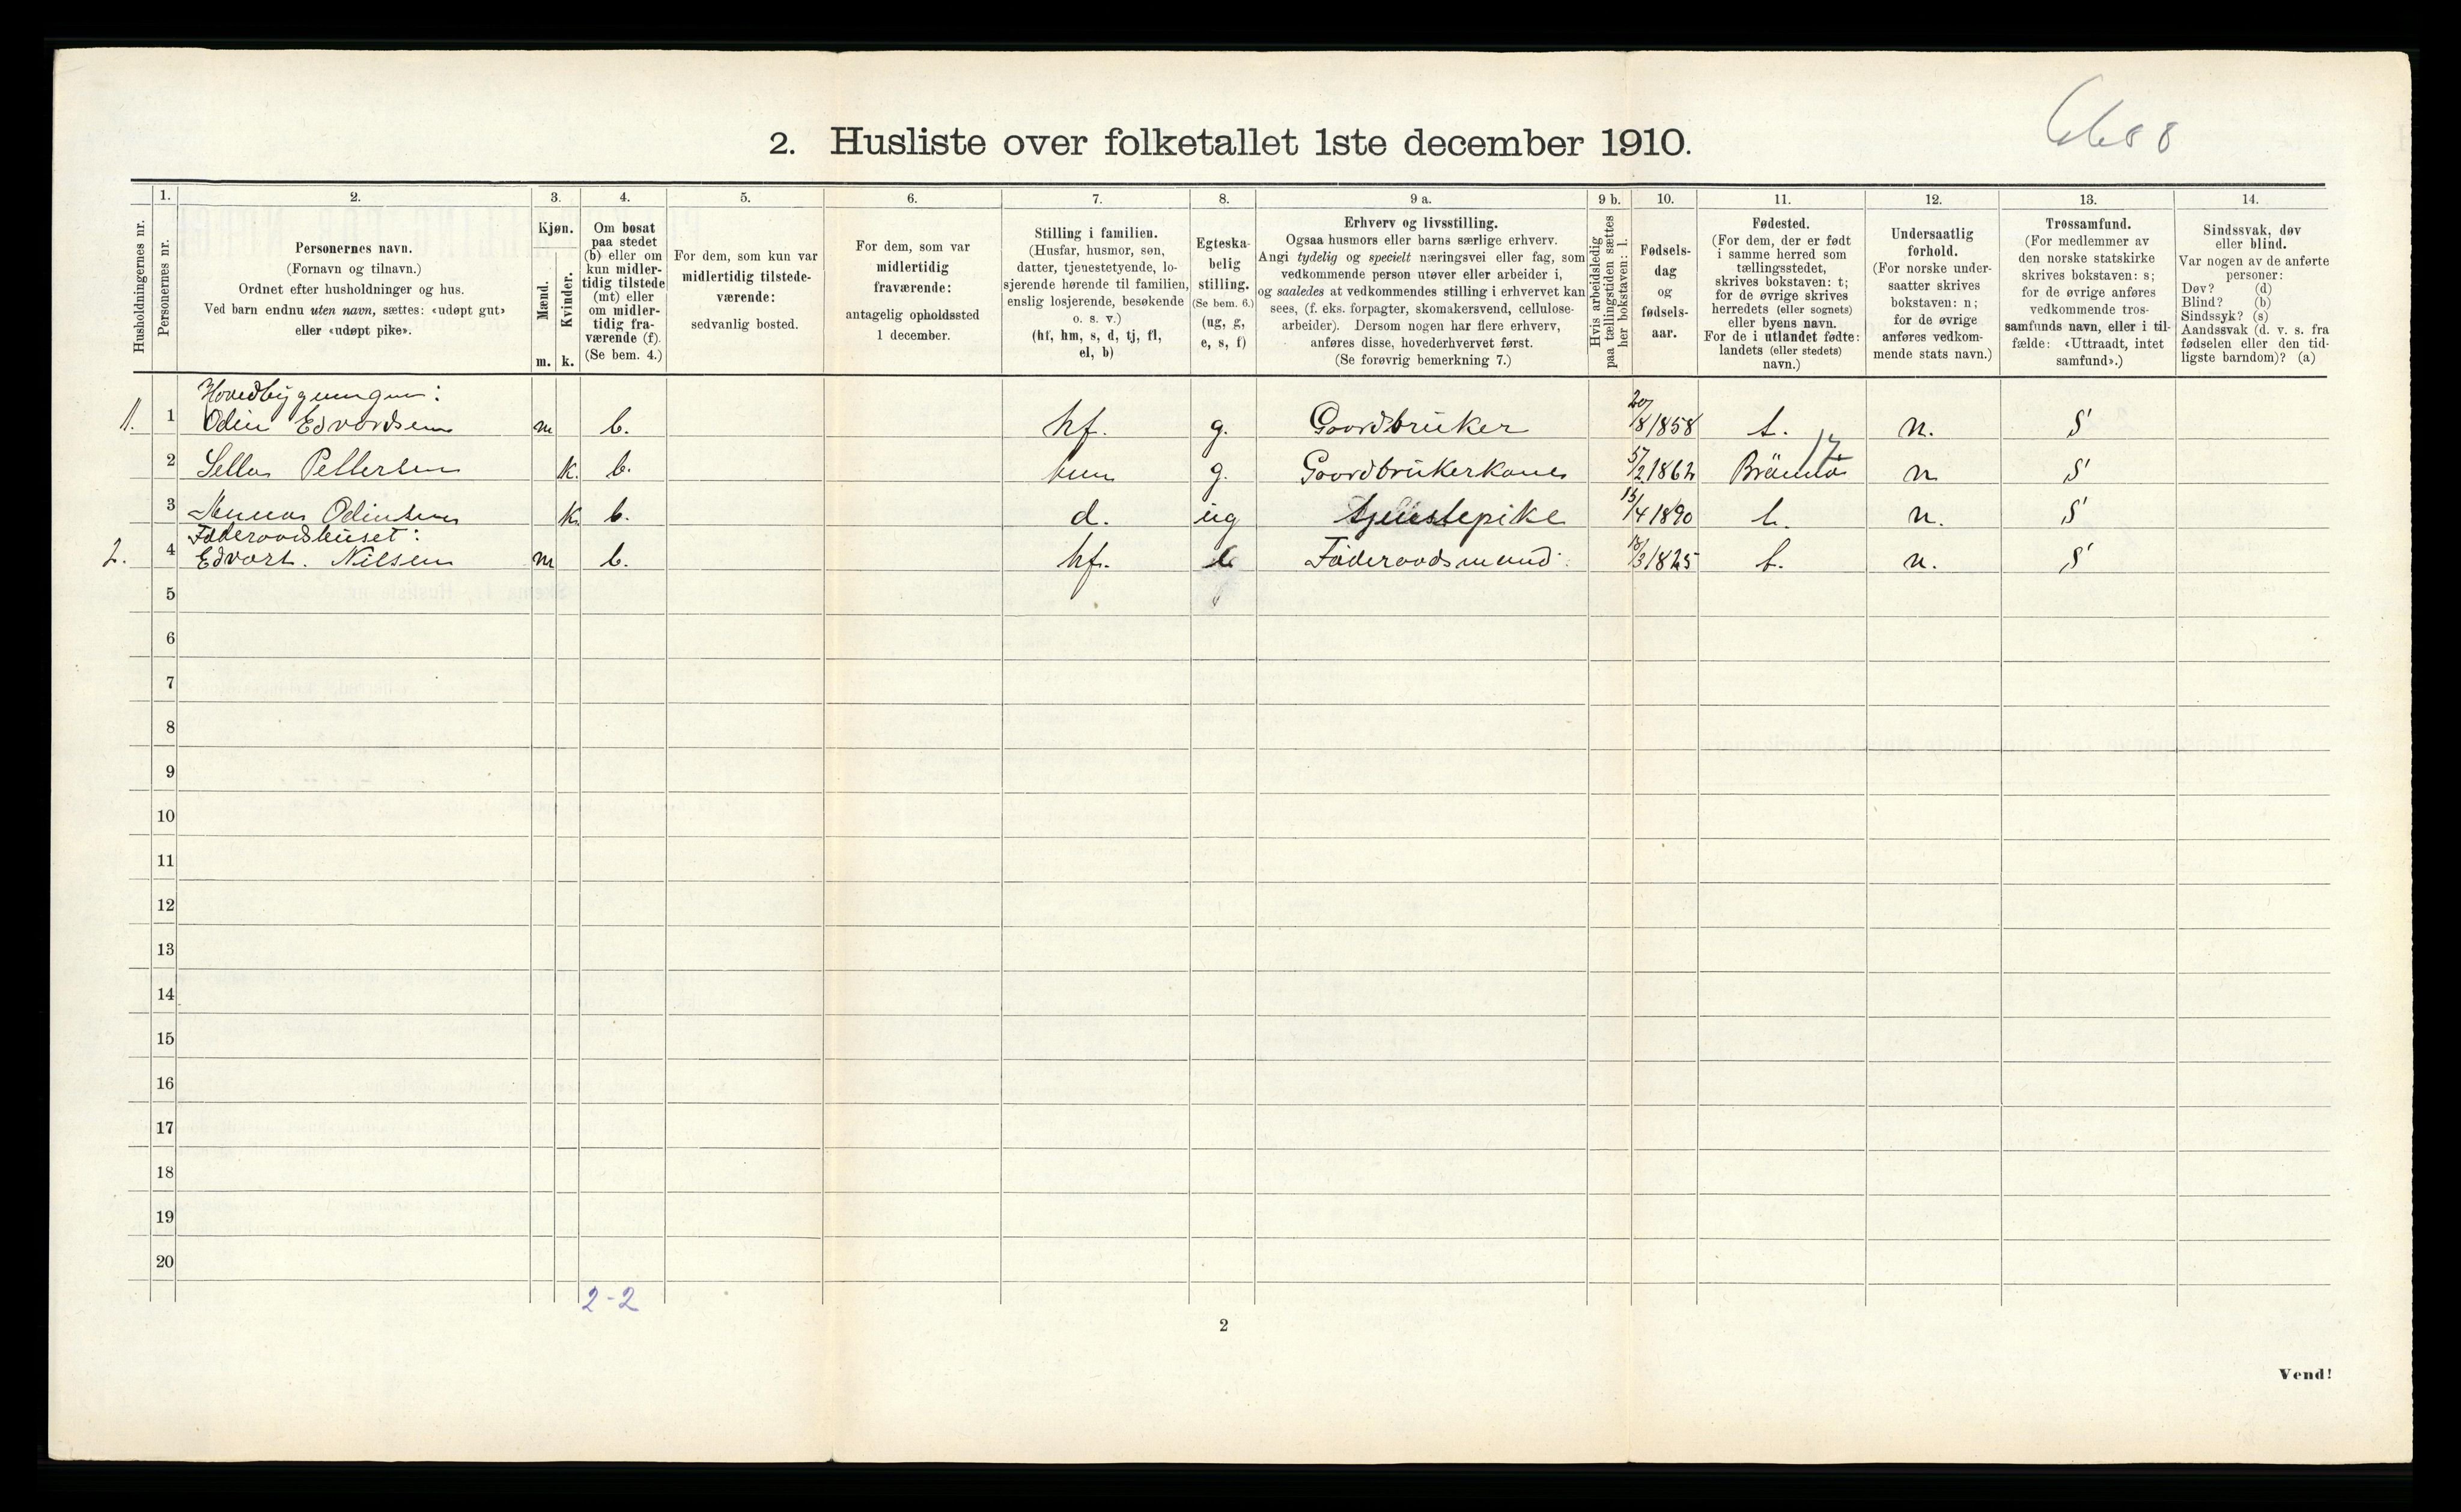 2. Husliste over folketallet 1ste december 1910.
Husholdningernes nr.
1.
Personernes nr.
2.
Personernes navn.
(Fornavn og tilnavn.)
Ordnet efter husholdninger og hus.
Ved barn endnu uten navn, sættes: «udøpt gut»
eller «udøpt pike».
3.
Kjøn.
Mænd.
Kvinder.
m. k.
4.
Om bosat
paa stedet
(b) eller om
kun midler-
tidig tilstede
(mt) eller
om midler-
tidig fra-
værende (f).
(Se bem. 4.)
5.
For dem, som kun var
midlertidig tilstede-
værende:
sedvanlig bosted.
6.
For dem, som var
midlertidig
fraværende:
antagelig opholdssted
1 december.
7.
Stilling i familien.
(Husfar, husmor, søn,
datter, tjenestetyende, lo-
sjerende hørende til familien,
enslig losjerende, besøkende
o. s. v.)
(hf, hm, s, d, tj, fl,
el, b)
8.
Egteska-
belig
stilling.
(Se bem. 6.)
(ug, g,
e, s, f)
9 a.
Erhverv og livsstilling.
Ogsaa husmors eller barns særlige erhverv.
Angi tydelig og specielt næringsvei eller fag, som
vedkommende person utøver eller arbeider i,
og saaledes at vedkommendes stilling i erhvervet kan
sees, (f. eks. forpagter, skomakersvend, cellulose-
arbeider). Dersom nogen har flere erhverv,
anføres disse, hovederhvervet først.
(Se forøvrig bemerkning 7.)
9 b.
Hvis arbeidsledig
paa tællingstiden sættes
her bokstaven: l.
10.
Fødsels-
dag
og
fødsels-
aar.
11.
Fødested.
(For dem, der er født
i samme herred som
tællingsstedet,
skrives bokstaven: t;
for de øvrige skrives
herredets (eller sognets)
eller byens navn.
For de i utlandet fødte:
landets (eller stedets)
navn.)
12.
Undersaatlig
forhold.
(For norske under-
saatter skrives
bokstaven: n;
for de øvrige
anføres vedkom-
mende stats navn.)
13.
Trossamfund.
(For medlemmer av
den norske statskirke
skrives bokstaven: s;
for de øvrige anføres
vedkommende tros-
samfunds navn, eller i til-
fælde: «Uttraadt, intet
samfund».)
14.
Sindssvak, døv
eller blind.
Var nogen av de anførte
personer:
Døv? (d)
Blind? (b)
Sindssyk? (s)
Aandssvak (d. v. s. fra
fødselen eller den tid-
ligste barndom)? (a)
Hovedbygningen:
1. 1 Odin Edvardsen m b. hf. g. Gaardbruker 20/8 1858 t. n. S
2 Pettersen k. b. hm g. Gaardbrukerkone 5/2 1862 Brönnö 17 n S
3 Odinsen k b. d. ug tjenstepike 15/4 1890 t. n. S
Föderaadshuset:
2. 4 Edvart. Nilsen m b. hf. e Föderaadsmand 18/3 1825 t. n. S
5
6
7
8
9
10
11
12
13
14
15
16
17
18
19
20
2-2
2
Vend!